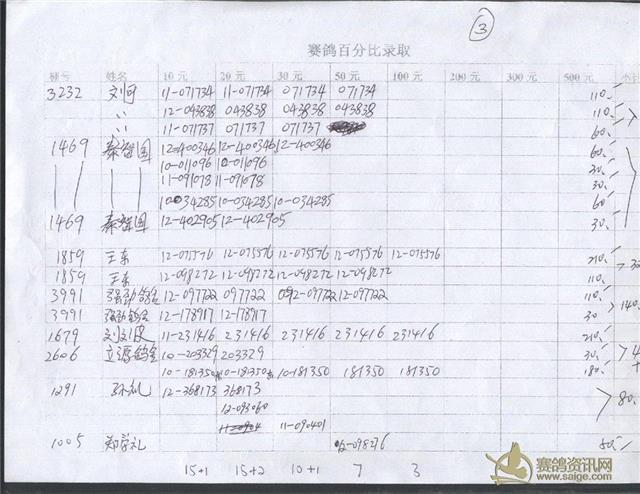 ③
赛鸽百分比录取
棚号 姓名 10元 20元 30元 50元 100元 200元 300元 500元 小计
3232 刘 11-071734 11-071734 071734 071734 110.
〃 12-043838 043838 043838 043838 110.
〃 11-071737 071737 071737 60.
1469 秦 国 12-400346 12-400346 12-400346 60.
10-011096 10-011096 30.
11-091078 11-091078 30.
10-034285 10-034285 10-034285 60.
1469 秦 国 12-402905 12-402905 30.
1859 王东 12-075576 12-075576 12-075576 12-075576 12-075576 210.
1859 王东 12-098272 12-098272 12-098272 12-098272 110.
3991 强 鸽舍 12-097722 097722 12-097722 12-097722 110.
3991 强 鸽舍 12-178917 12-178917 30
1679 刘 11-231416 231416 231416 231416 231416 210.
2606 立源鸽舍 10-203329 203329 30.
10-181350 10-181350 10-181350 181350 181350
1291 孙 12-368173 368173 80.
12-093080
11-090401
1005 郑 礼 12-098276 50.
15+1 15+2 10+1 7 3
赛鸽资讯网
www.saige.com